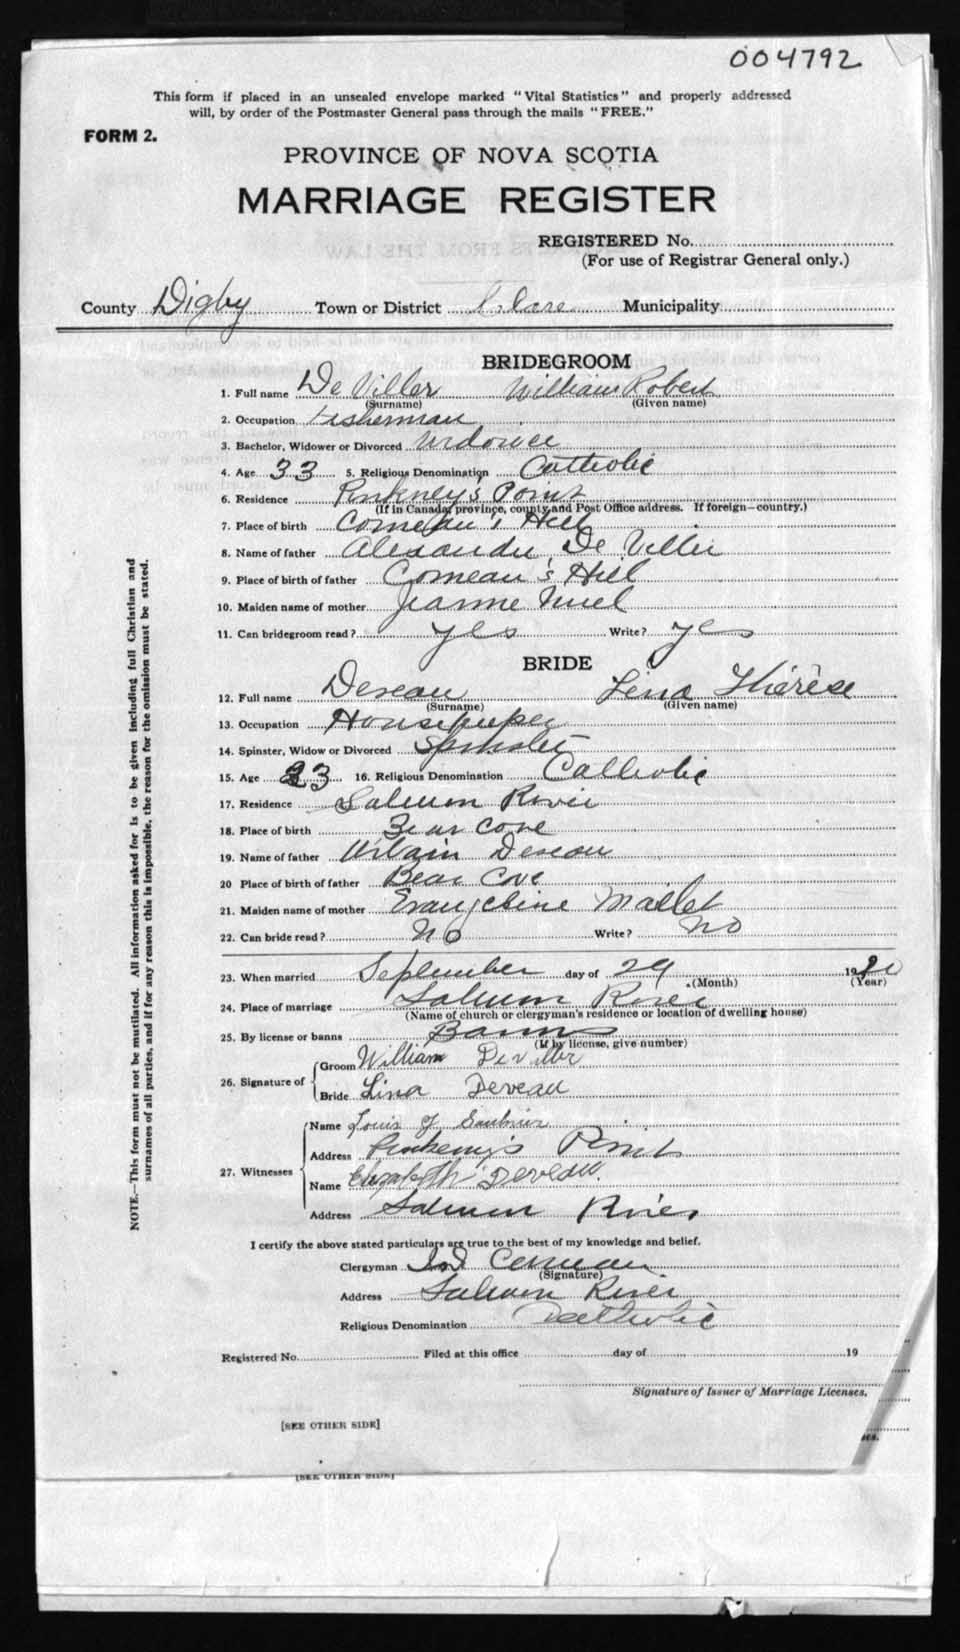 004792
This form if placed in an unsealed envelope marked "Vital Statistics" and properly addressed
will, by order of the Postmaster General pass through the mails "FREE."
FORM 2.
PROVINCE OF NOVA SCOTIA
MARRIAGE REGISTER
REGISTERED No.
(For use of Registrar General only.)
County Digby Town or District Clare Municipality
BRIDEGROOM
1. Full name De Viller William Robert
(Surname) (Given name)
2. Occupation Fisherman
3. Bachelor, Widower or Divorced Widower
4. Age 33 5. Religious Denomination Catholic
6. Residence Pinkney's Point
(If in Canada, province, county and Post Office address. If foreign—country.)
7. Place of birth Comeau's Hill
8. Name of father Alexander De Viller
9. Place of birth of father Comeau's Hill
10. Maiden name of mother Jeanne
11. Can bridegroom read? yes Write? yes
BRIDE
12. Full name Deveau Lina Thérèse
(Surname) (Given name)
13. Occupation Housekeeper
14. Spinster, Widow or Divorced Spinster
15. Age 23 16. Religious Denomination Catholic
17. Residence Salmon River
18. Place of birth Bear Cove
19. Name of father Urbain Deveau
20 Place of birth of father Bear Cove
21. Maiden name of mother Evangeline Mallet
22. Can bride read? No Write? No
23. When married September day of 29 19
(Month) (Year)
24. Place of marriage Salmon River
(Name of church or clergyman's residence or location of dwelling house)
25. By license or banns Banns
(If by license, give number)
26. Signature of Groom William Deviller
Bride Lina Deveau
27. Witnesses Name Louis J Saulnier
Address Pinkney's Point
Name Elizabeth Deveau.
Address Salmon River
I certify the above stated particulars are true to the best of my knowledge and belief.
Clergyman Comeau
(Signature)
Address Salmon River
Religious Denomination Catholic
Registered No. Filed at this office day of 19
Signature of Issuer of Marriage Licenses.
[SEE OTHER SIDE]
[SEE OTHER SIDE]
NOTE.—This form must not be mutilated. All information asked for is to be given including full Christian and
surnames of all parties, and if for any reason this is impossible, the reason for the omission must be stated.